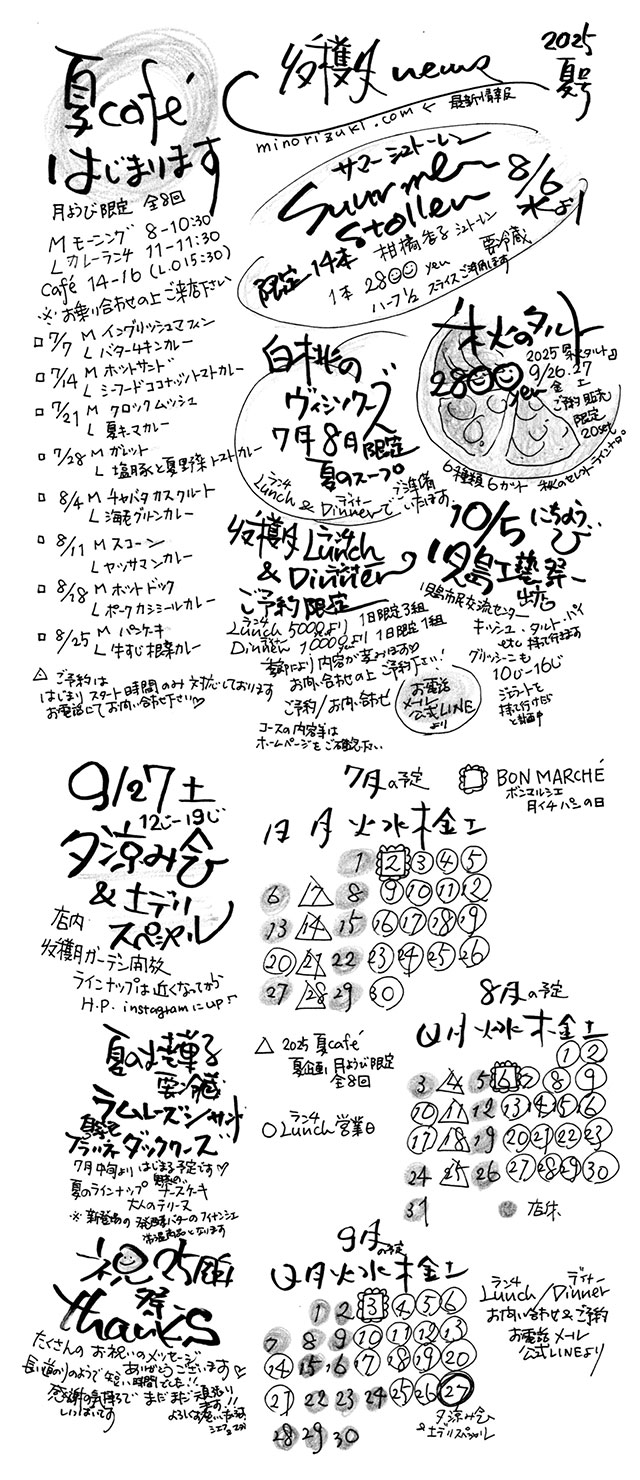 夏café
はじまります
月ようび限定 全8回
M モーニング 8-10:30
L カレーランチ 11-11:30
Café 14-16 (L.O15:30)
※お乗り合わせの上ご来店下さい
7/7 M イングリッシュマフィン
L バターチキンカレー
7/14 M ホットサンド
L シーフードココナッツトマトカレー
7/21 M クロックムッシュ
L 夏キーマカレー
7/28 M ガレット
L 塩豚と夏野菜トマトカレー
8/4 M チャバタカスクルト
L 海老グリーンカレー
8/11 M スコーン
L マッサマンカレー
8/18 M ホットドック
L ポークカシミールカレー
8/25 M パンケーキ
L 牛すじ根菜カレー
△ ご予約は
はじまりスタート時間のみ対応しております
お電話にてお問い合せ下さい♡
収穫月 news
2025
夏号
minorizuki.com ← 最新情報
サマーシュトーレン
Summer
Stollen
8/6
水より
限定14本 柑橘杏子シュトーレン 要冷蔵
1本 2800 yen
ハーフ1/2 スライスご用意します
白桃の
ヴィシソワーズ
7月8日限定
夏のスープ
ランチ ディナー
Lunch & Dinnerでご準備
いたします
秋のタルト
2800 yen
2025『秋タルト』
9/26.27
金 土
ご予約販売
限定
20set
6種類6カット 秋のセレクトラインナップ
収穫月 Lunch ランチ
& Dinner ディナー
ご予約限定
ランチ
Lunch 5000yenより 1日限定3組
ディナー
Dinner 10000yenより 1日限定1組
季節により内容が変わります♡
お問い合わせの上ご予約下さい!
ご予約/お問い合わせ
お電話
メール
公式LINE
より
コースの内容等は
ホームページをご確認下さい
10/5 にちようび
児島工藝祭
出店
児島市民交流センター
キッシュ・タルト・パイ
etc 持って行きます
グリッシーニも
10じ-16じ
ジェラートを
持って行けたら
と計画中
9/27 土
12じ-19じ
夕涼み会
& 土デリ
スペシャル
店内
収穫月ガーデン開放
ラインナップは近くなってから
H.P. instagramにup♪
7月の予定
BON MARCHÉ
ボンマルシェ
月イチパンの日
日 月 火 水 木 金 土
1 2 3 4 5
6 7 8 9 10 11 12
13 14 15 16 17 18 19
20 21 22 23 24 25 26
27 28 29 30
8月の予定
日 月 火 水 木 金 土
1 2
3 4 5 6 7 8 9
10 11 12 13 14 15 16
17 18 19 20 21 22 23
24 25 26 27 28 29 30
31
店休
△ 2025 夏café
夏企画 月ようび限定
全8回
ランチ
○ Lunch 営業日
夏の焼菓子
要冷蔵
ラムレーズンサンド
ダックワーズ
7月中旬よりはじまる予定です♡
夏のラインナップ チーズケーキ
大人のテリーヌ
※ 新登場の発酵バターのフィナンシェ
常温商品となります
祝 25周年
祭
thanks
たくさんのお祝いのメッセージ
ありがとうございます♡
長い道のりのようで短い時間でした!!
感謝の気持ちで
いっぱいです
まだまだ頑張り
ます!!
よろしくお願い致します
9月の予定
日 月 火 水 木 金 土
1 2 3 4 5 6
7 8 9 10 11 12 13
14 15 16 17 18 19 20
21 22 23 24 25 26 27
28 29 30
夕涼み会
& 土デリスペシャル
ランチ ディナー
Lunch/Dinner
お問い合わせ&ご予約
お電話 メール
公式LINEより